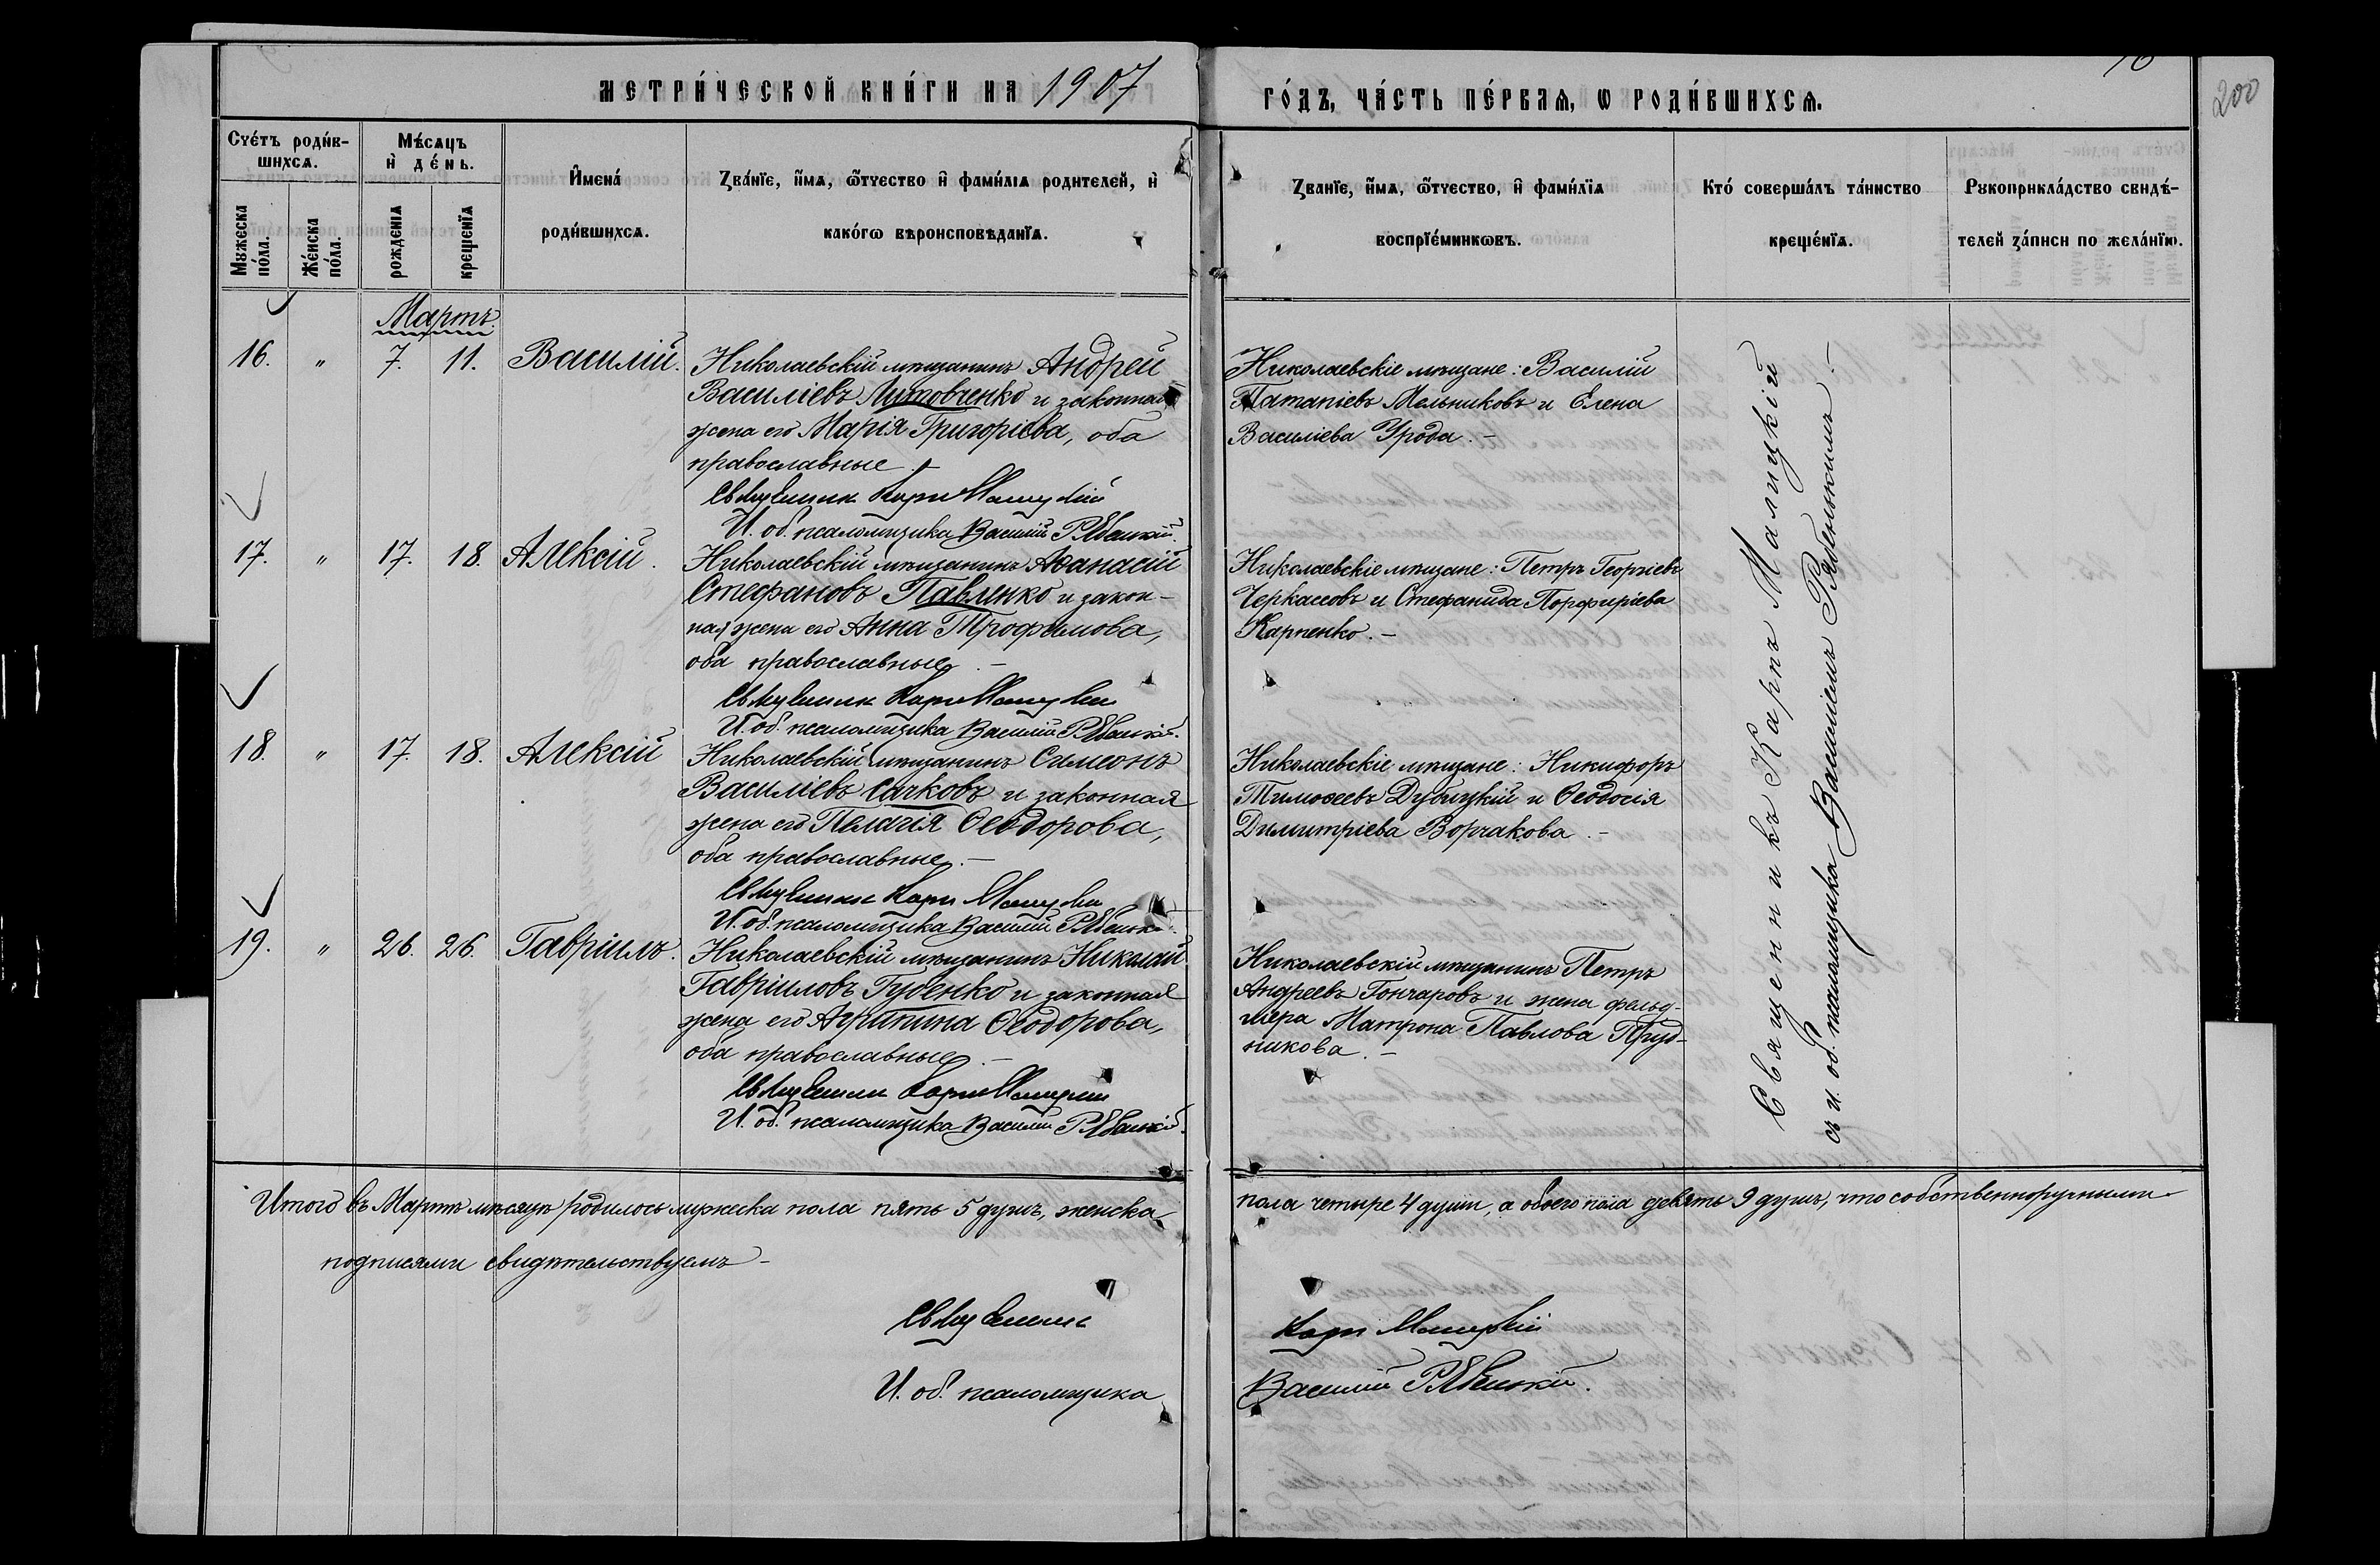 метри́ческой кни́ги на 1907
го́дъ, ча́сть пе́рваѧ, ѡ роди́вшихсѧ.
200
Сче́тъ роди́в-
шихсѧ.
Му́жеска
по́ла.
Же́нска
по́ла.
Мѣ́сѧцъ
и҆ де́нь.
рожденїѧ
крещенїѧ
И҆мена̀
роди́вшихсѧ.
Зва́нїе, и҆́мѧ, ѻ҆́тчество и҆ фами́лїѧ родителей, и҆
како́гѡ вѣроисповѣданїѧ.
Званїе, и҆́мѧ, ѻ҆́тчество, и҆ фами́лїѧ
воспрїе́мникѡвъ.
Кто́ соверша́лъ та́инство
креще́нїѧ.
Рꙋкоприкла́дство свидѣ́-
телей за́писи по жела́нїю.
Мартъ.
16. " 7. 11. Василій.
Николаевскій мѣщанинъ Андрей
Василіевъ Литовченко и законная
жена его Марія Григоріева, оба
православные.
Священник Карп Малицкій
И. об. псаломщика Василій Рябенькій.
Николаевскіе мѣщане: Василій
Патапіевъ Мельниковъ и Елена
Василіева Урода. –
17. " 17. 18. Алексій.
Николаевскій мѣщанинъ Аѳанасій
Стефановъ Павленко и закон-
ная жена его Анна Трофимова,
оба православные. –
Священник Карп Малицкій
И. об. псаломщика Василій Рябенькій.
Николаевскіе мѣщане: Петръ Георгіевъ
Черкассовъ и Стефанида Порфиріева
Карпенко. –
18. " 17. 18. Алексій
Николаевскій мѣщанинъ Симеонъ
Василіевъ Сачковъ и законная
жена его Пелагія Ѳеодорова,
оба православные. –
Священник Карп Малицкій
И. об. псаломщика Василій Рябенькій.
Николаевскіе мѣщане: Никифоръ
Тимоѳеевъ Дубицкій и Ѳеодосія
Димитріева Ворчакова. –
19. " 26. 26. Гавріилъ.
Николаевскій мѣщанинъ Николай
Гавріиловъ Губенко и законная
жена его Агрипина Ѳеодорова,
оба православные. –
Священник Карп Малицкій
И. об. псаломщика Василій Рябенькій.
Николаевскій мѣщанинъ Петръ
Андреевъ Гончаровъ и жена фельд-
шера Матрона Павлова Пруд-
никова. –
Священникъ Карпъ Малицкій
съ и. об. псаломщика Василіемъ Рябенькимъ. –
Итого въ Мартѣ мѣсяцѣ родилось мужеска пола пять 5 душъ, женска
пола четыре 4 души, а обоего пола девять 9 душъ, что собственноручными
подписями свидѣтельствуемъ –
Священник
Карп Малицкій
И. об. псаломщика
Василій Рябенькій.